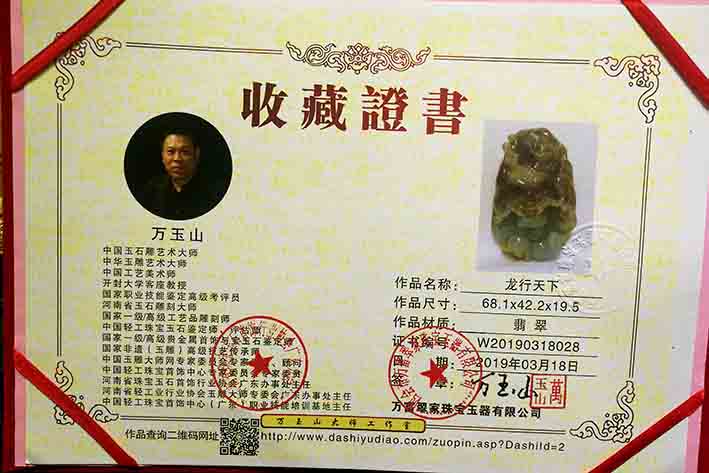 收藏證書
万玉山
中国玉石雕艺术大师
中华玉雕艺术大师
中国工艺美术师
开封大学客座教授
国家职业技能鉴定高级考评员
河南省玉石雕刻大师
国家一级/高级工艺品雕刻师
中国轻工珠宝玉石鉴定师、评估师
国家一级/高级贵金属首饰与宝玉石鉴定师
国家非遗（玉雕）高级技艺传承师
中国玉雕大师网专家委员会专家 顾问
中国轻工珠宝首饰中心专家委员会专家委员
河南省珠宝玉石首饰行业协会广东办事处主任
河南省轻工业行业协会玉雕大师专委会广东办事处主任
中国轻工珠宝首饰中心（广东）职业技能培训基地主任
作品名称： 龙行天下
作品尺寸： 68.1x42.2x19.5
作品材质： 翡翠
证书编号： W20190318028
日期： 2019年03月18日
章： 万玉山
萬玉山
万 翠家珠宝玉器有限公司
万玉山大师工作室
作品查询二维码网址
http://www.dashiyudiao.com/zuopin.asp?Dashild=2